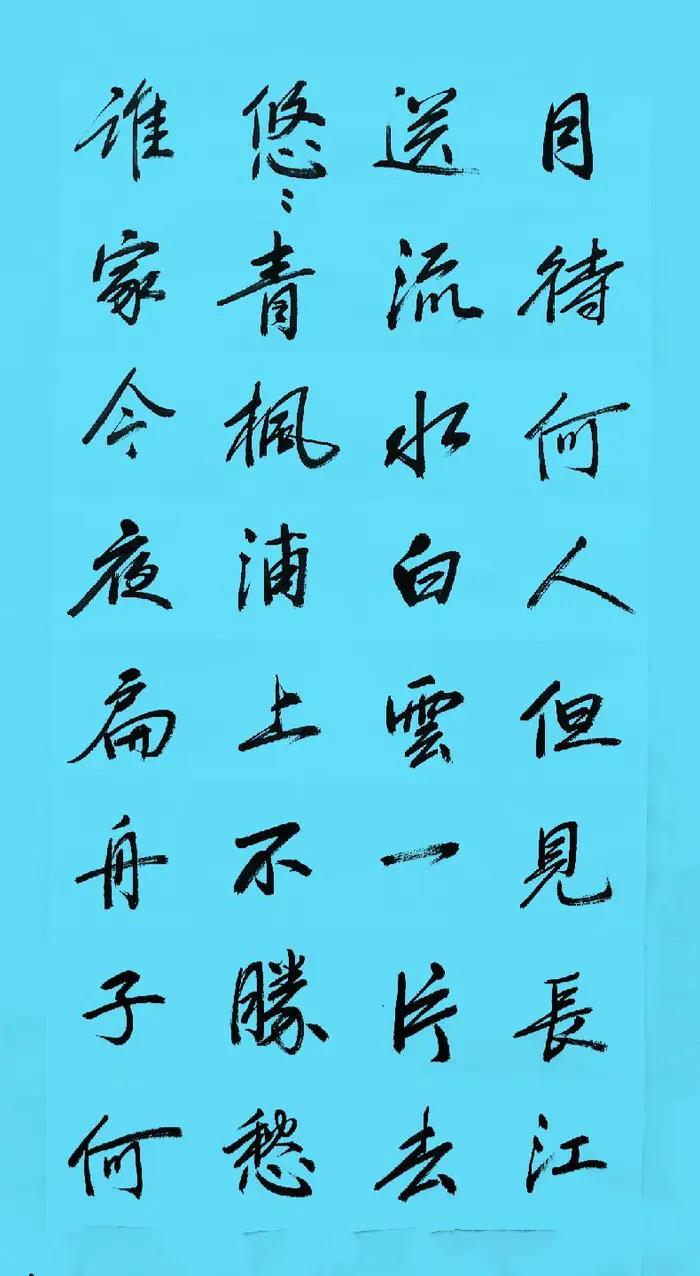 月待何人但見長江
送流水白雲一片去
悠〻青楓浦上不勝愁
誰家今夜扁舟子何